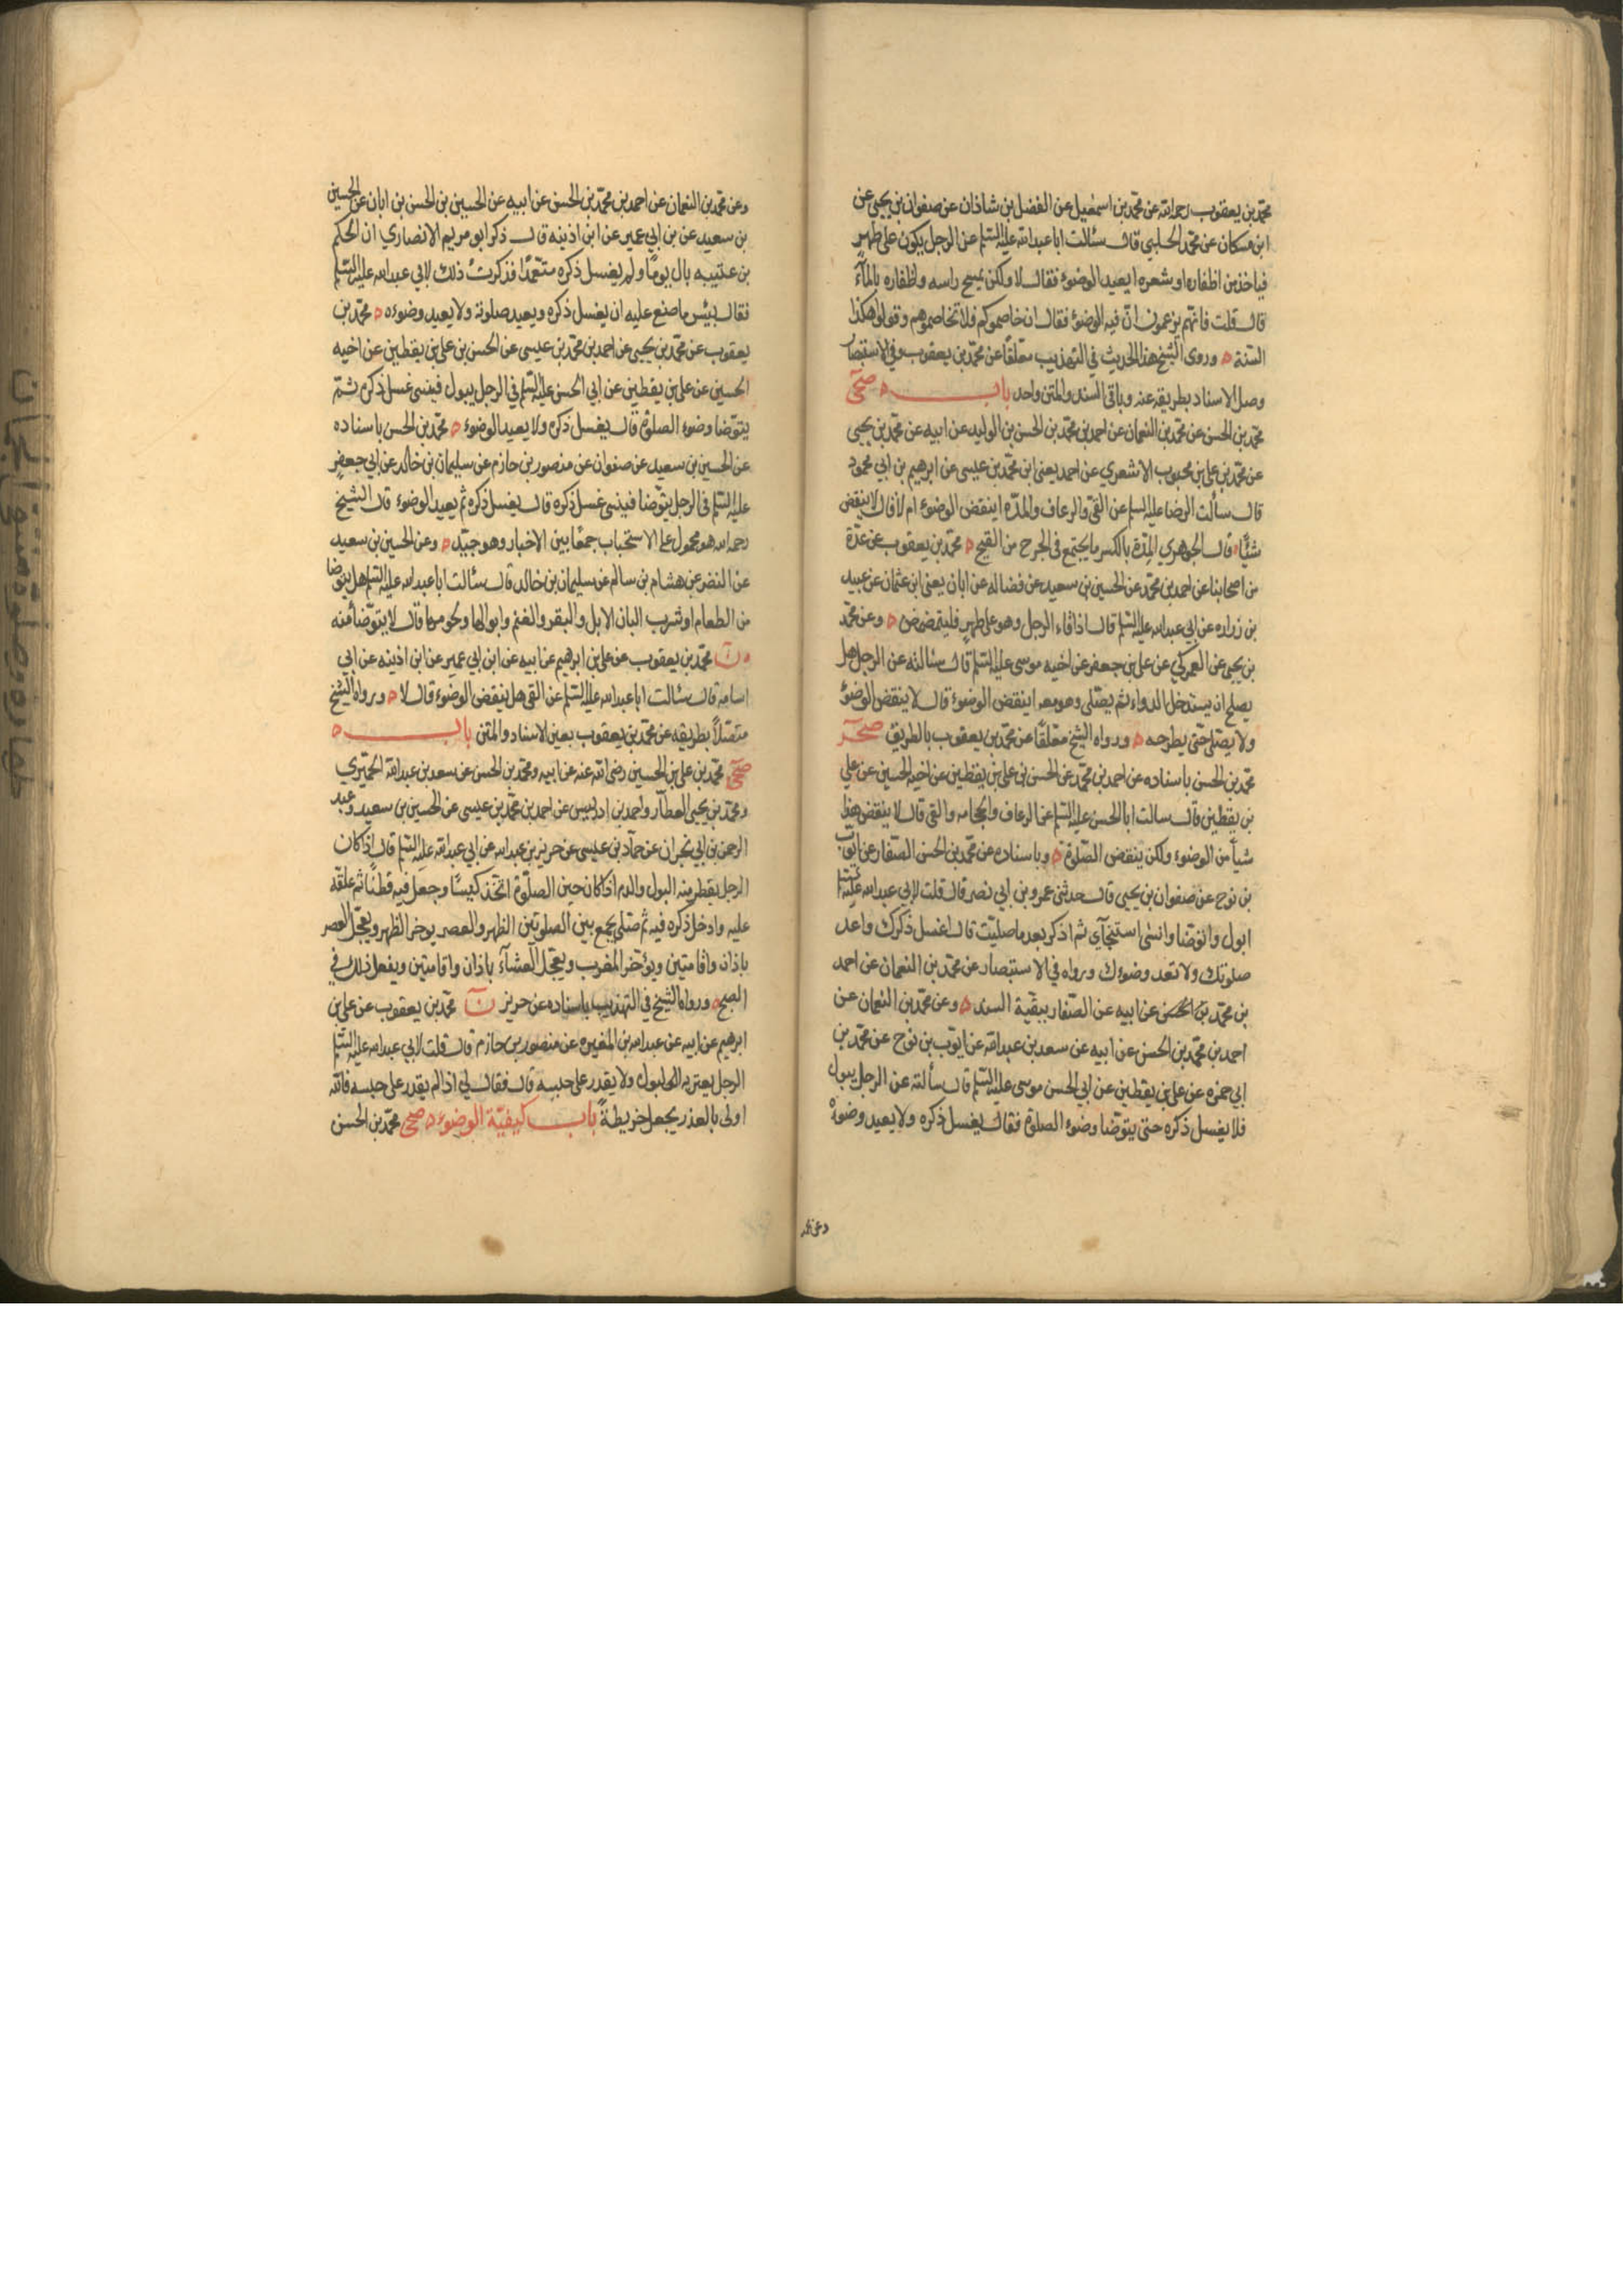 محمد بن يعقوب رحمه الله عن محمد بن اسمعيل عن الفضل بن شاذان عن صفوان بن يحيى عن
ابن مسكان عن محمد الحلبي قال سئالت ابا عبد الله عليه السلم عن الرجل يكون على طهر
فياخذ من اظفاره او شعره ايعيد الوضوء فقال لا ولكن يمسح راسه واظفاره بالمآء
قال قلت فانهم يزعمون انّ فيه الوضوء فقال ان خاصموكم فلا تخاصموهم وقولوا هكذا
السّنة ه وروى الشيخ هذا الحديث في التهذيب معلّقًا عن محمد بن يعقوب وفي الاستبصار
وصل الاسناد بطريقه عنه وباقي السند والمتن واحد باب ه صحى
محمد بن الحسن عن محمد بن النعمان عن احمد بن محمد بن الحسن بن الوليد عن ابيه عن محمد بن يحيى
عن محمد بن علي بن محبوب الاشعري عن احمد يعني ابن محمد بن عيسى عن ابرهيم بن ابي محمود
قال سألت الرضا عليه السلم عن القئ والرعاف والمدّه اينقض الوضوء ام لا قال لا ينقض
شيئًا ه قال الجوهري المِدّة بالكسر ما يجتمع في الجرح من القيح ه محمد بن يعقوب عن عدّة
من اصحابنا عن احمد بن محمد عن الحسين بن سعيد عن فضاله عن ابان يعني ابن عثمان عن عبيد
بن زراره عن ابي عبد الله عليه السلم قال اذا قاء الرجل وهو على طهرٍ فليتمضمض ه وعن محمد
بن يحيى عن العمركي عن علي بن جعفر عن اخيه موسى عليه السلم قال سئالته عن الرجل هل
يصلح ان يستدخل الدواء ثم يصلّى وهو معه اينقض الوضوء قال لا ينقض الوضوء
ولا يصلّى حتّى يطرحه ه ورواه الشيخ معلّقًا عن محمد بن يعقوب بالطريق صحر
محمد بن الحسن باسناده عن احمد بن محمد عن الحسن بن علي بن يقطين عن اخيه الحسين عن علي
بن يقطين قال سالت ابا الحسن عليه السلم عن الرعاف والحجامه والقئ قال لا ينقض هذا
شيأ من الوضوء ولكن ينقض الصّلوة ه وباسناده عن محمد بن الحسن الصفار عن ايّوب
بن نوح عن صفوان بن يحيى قال حدثني عمرو بن ابي نصر قال قلت لابي عبد الله عليه السلم
ابول واتوضا وانسى استنجآي ثم اذكر بعد ما صليّت قال اغسل ذكرك واعد
صلوتك ولا تعد وضوءك ورواه في الاستبصار عن محمد بن النعمان عن احمد
بن محمد بن الحسن عن ابيه عن الصّفار ببقيّة السند ه وعن محمد بن النعمان عن
احمد بن محمد بن الحسن عن ابيه عن سعد بن عبد الله عن ايّوب بن نوح عن محمد بن
ابي حمزه عن علي بن يقطين عن ابي الحسن موسى عليه السلم قال سألته عن الرجل يبول
فلا يغسل ذكره حتى يتوّضا وضوء الصلوة فقال يغسل ذكره ولا يعيد وضوءه
وعن محمد بن النعمان عن احمد بن محمد بن الحسن عن ابيه عن الحسين بن الحسن بن ابان عن الحسين
بن سعيد عن بن ابي عمير عن ابن اذينه قال ذكر ابو مريم الانصاري ان الحكم
بن عتيبه بال يومًا ولم يغسل ذكره متعّمدًا فذكرت ذلك لابي عبد الله عليه السلم
فقال بئس ما صنع عليه ان يغسل ذكره ويعيد صلوته ولا يعيد وضوءه ه محمد بن
يعقوب عن محمد بن يحيى عن احمد بن محمد بن عيسى عن الحسن بن علي بن يقطين عن اخيه
الحسين عن علي بن يقطين عن ابي الحسن عليه السلم في الرجل يبول فينسى غسل ذكره ثمّ
يتوّضا وضوء الصلوة قال يغسل ذكره ولا يعيد الوضوء ه محمد بن الحسن باسناده
عن الحسين بن سعيد عن صفوان عن منصور بن حازم عن سليمان بن خالد عن ابي جعفرٍ
عليه السلم في الرجل يتوّضا فينسى غسل ذكره قال يغسل ذكره ثم يعيد الوضوء قال الشيخ
رحمه الله هو محمول على الاستحباب جمعًا بين الاخبار وهو جيّد ه وعن الحسين بن سعيد
عن النضر عن هشام بن سالم عن سليمان بن خالد قال سئالت ابا عبد الله عليه السلم هل يتوضا
من الطعام او شرب البان الابل والبقر والغنم وابوالها ولحومها قال لا يتوّضا منه
ه ن محمد بن يعقوب عن علي بن ابرهيم عن ابيه عن ابن ابي عمير عن ابن اذينه عن ابي
اسامة قال سئالت ابا عبد الله عليه السلم عن القئ هل ينقض الوضوء قال لا ه ورواه الشيخ
متصّلاً بطريقه عن محمد بن يعقوب بعين الاسناد والمتن باب ه
صحى محمد بن علي بن الحسين رضى الله عنه عن ابيه ومحمد بن الحسن عن سعد بن عبد الله الحميري
ومحمد بن يحيى العطّار واحمد بن ادريس عن احمد بن محمد بن عيسى عن الحسين بن سعيد وعبد
الرحمن بن ابي نجران عن حمّاد بن عيسى عن حريز بن عبد الله عن ابي عبد الله عليه السلم قال اذا كان
الرجل يقطر منه البول والدم اذا كان حين الصلّوة اتّخذ كيسًا وجعل فيه قطنًا ثم علّقه
عليه وادخل ذكره فيه ثم صلى يجمع بين الصلوتين الظهر والعصر يوخر الظهر ويعجّل العصر
باذان واقامتين ويؤخر المغرب ويعجّل العشآء باذان واقامتين ويفعل ذلك في
الصبح ه ورواه الشيخ في التهذيب باسناده عن حريز ن محمد بن يعقوب عن علي بن
ابرهيم عن ابيه عن عبد الله بن المغيره عن منصور بن حازم قال قلت لابي عبد الله عليه السلم
الرجل يعتريه البول ولا يقدر على حبسه قال فقال لي اذا لم يقدر على حبسه فالله
اولى بالعذر يجعل خريطةً باب كيفيّة الوضوء ه صحى محمد بن الحسن
وعن محمد